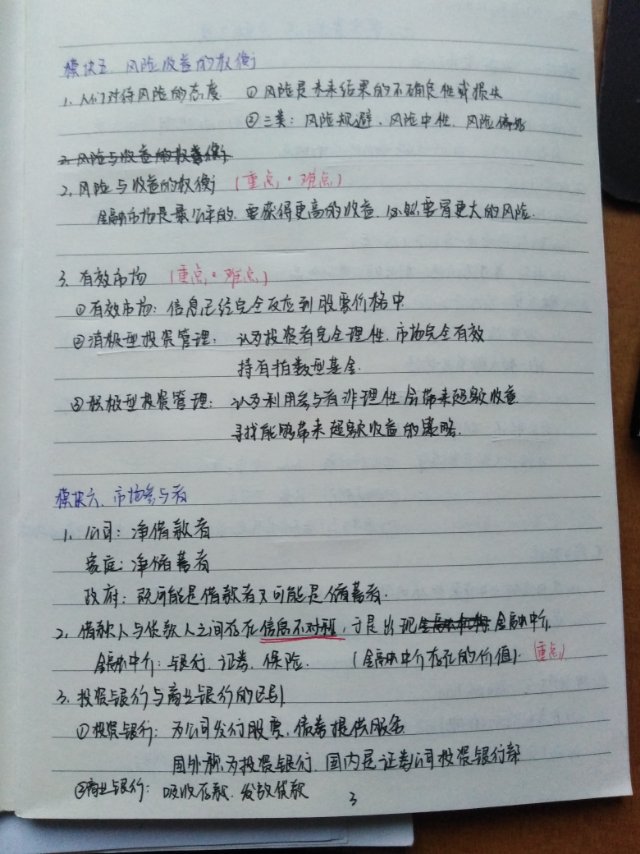 模块五、风险收益的权衡
1. 人们对待风险的态度 ①风险是未来结果的不确定性或损失
②三类：风险规避、风险中性、风险偏好
2. 风险与收益的权衡
2. 风险与收益的权衡 (重点·难点)
金融市场是最公平的，要获得更高的收益，必然要冒更大的风险.
3. 有效市场 (重点·难点)
①有效市场：信息已经完全反应到股票价格中
②消极型投资管理：认为投资者完全理性，市场完全有效
持有指数型基金.
③积极型投资管理：认为利用参与者非理性会带来超额收益
寻找能够带来超额收益的策略.
模块六、市场参与者
1. 公司：净借款者
家庭：净储蓄者
政府：既可能是借款者又可能是储蓄者.
2. 借款人与贷款人之间存在信息不对称，于是出现金融机构金融中介,
金融中介：银行、证券、保险. (金融中介存在的价值) (重点)
3. 投资银行与商业银行的区别
①投资银行：为公司发行股票，债券提供服务
国外称为投资银行，国内是证券公司投资银行部
②商业银行：吸收存款、发放贷款
3